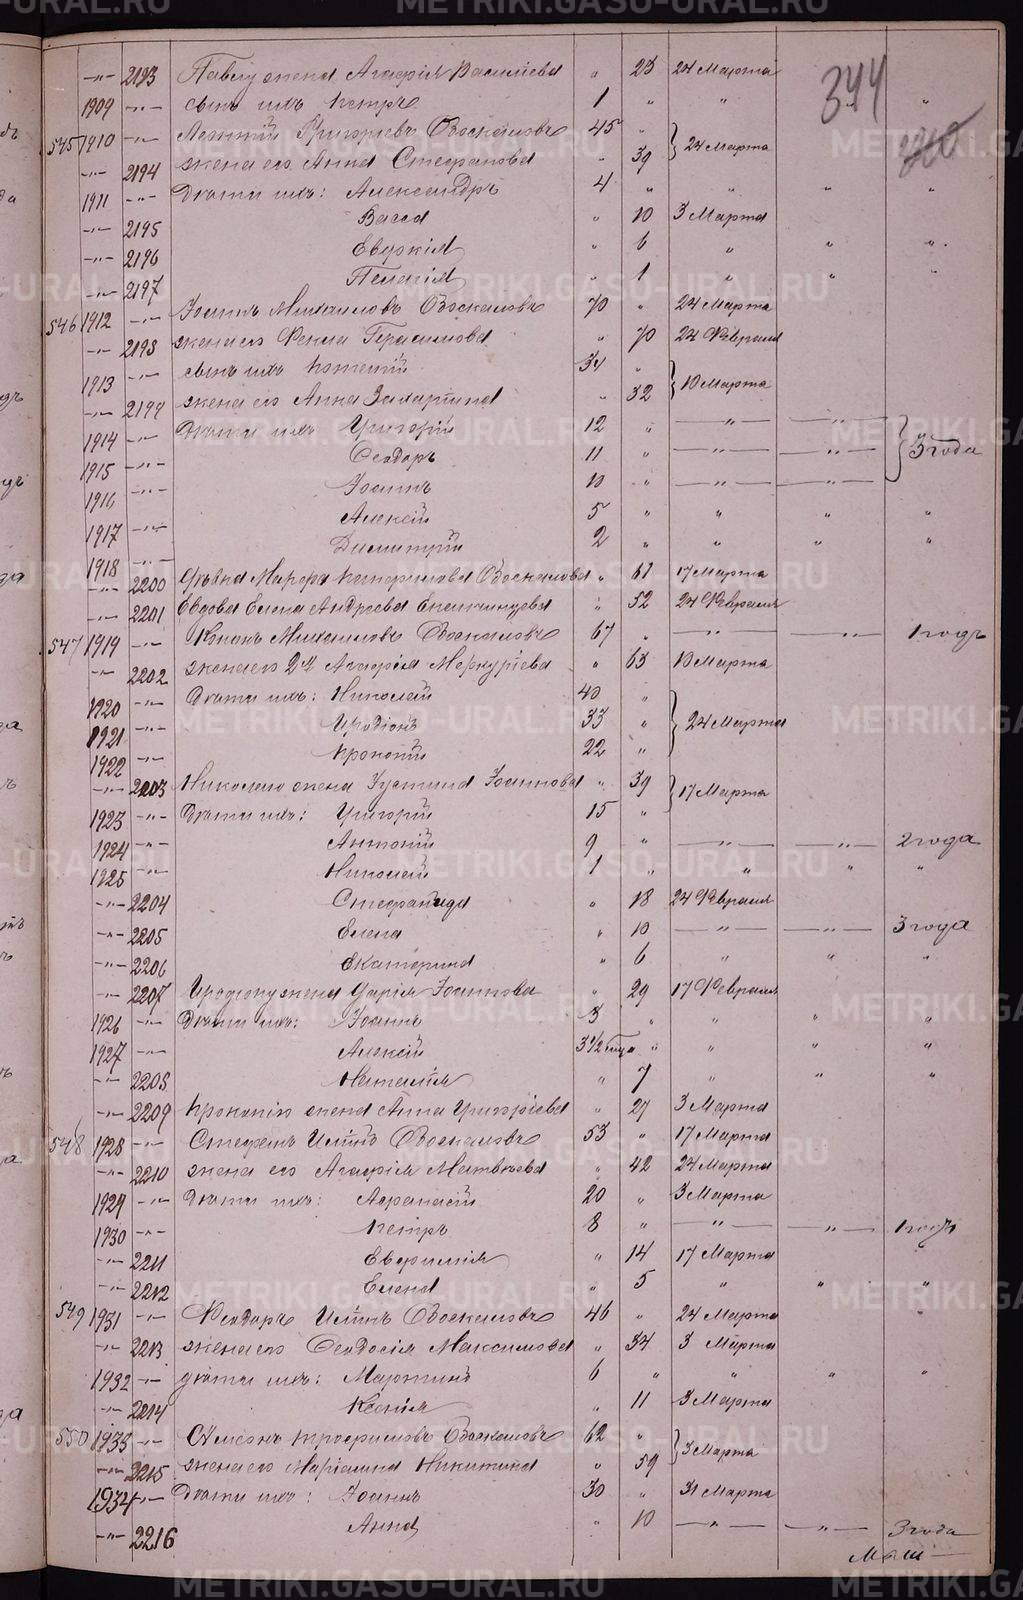 344
2193 Павлу жена Агафія Василіева " 23 24 Марта
1909 сынъ ихъ Петръ 1 " " "
545 1910 Леонтій Григоріевъ Воскаловъ 45 " } 24 Марта
2194 жена его Анна Стефанова " 39
1911 Дѣти ихъ: Александръ 4 " " " "
2195 Васса " 10 3 Марта
2196 Евдокія " 6 " " "
2197 Пелагія " 1 " " "
546 1912 Іоаннъ Михаиловъ Воскаловъ 70 " 24 Марта
2198 жена его Ѳекла Герасимова " 70 24 Февраля
1913 сынъ ихъ 34 " } 10 Марта
2199 жена его Анна Захаріина " 32
1914 Дѣти ихъ Григорій 12 " — " — — " — } 3 года
1915 Ѳеодоръ 11 " — " — — " —
1916 Іоаннъ 10 " — " — — " —
1917 Алексій 5 " " " "
1918 Димитрій 2 " " " "
2200 Дѣвка Марѳа Воскалова " 61 17 Марта
2201 Вдова Елена Андреева " 52 24 Февраля
547 1919 Михаиловъ Воскаловъ 67 " — " — — " — 1 годъ
2202 жена его 2я Агафія Меркуріева " 63 10 Марта
1920 Дѣти ихъ: Николай 40 " } 24 Марта
1921 Иродіонъ 33 "
1922 Прокопій 22 "
2203 Николаю жена Іустина Іоаннова " 39 } 17 Марта
1923 Дѣти ихъ: Григорій 15 "
1924 Антоній 9 " — " — — " — 2 года
1925 Николай 1 " " " "
2204 Стефанида " 18 24 Февраля
2205 Елена " 10 — " — — " — 3 года
2206 Екатерина " 6 " " "
2207 Иродіону жена Дарія Іоаннова " 29 17 Февраля
1926 Дѣти ихъ: Іоаннъ 3 " " " "
1927 Алексій 3 1/2 года " " " "
2208 Наталія " 7 " " "
2209 Прокопію жена Анна Григоріева " 27 3 Марта
548 1928 Стефанъ Воскаловъ 53 " 17 Марта
2210 жена его Агафія Матвѣева " 42 24 Марта
1929 Дѣти ихъ: Аѳанасій 20 " 3 Марта
1930 Петръ 8 " — " — — " — 1 годъ
2211 Евфимія " 14 17 Марта
2212 Елена " 5 " " "
549 1931 Ѳеодоръ Воскаловъ 46 " 24 Марта
2213 жена его Ѳеодосія Максимова " 34 3 Марта
1932 дѣти ихъ: Мартинъ 6 " " " "
2214 Ксенія " 11 3 Марта
550 1933 Симеонъ Трофимовъ Воскаловъ 62 " } 3 Марта
2215 жена его Маріамна Никитина " 59
1934 Дѣти ихъ: Іоаннъ 30 " 31 Марта
2216 Анна " 10 — " — — " — 3 года